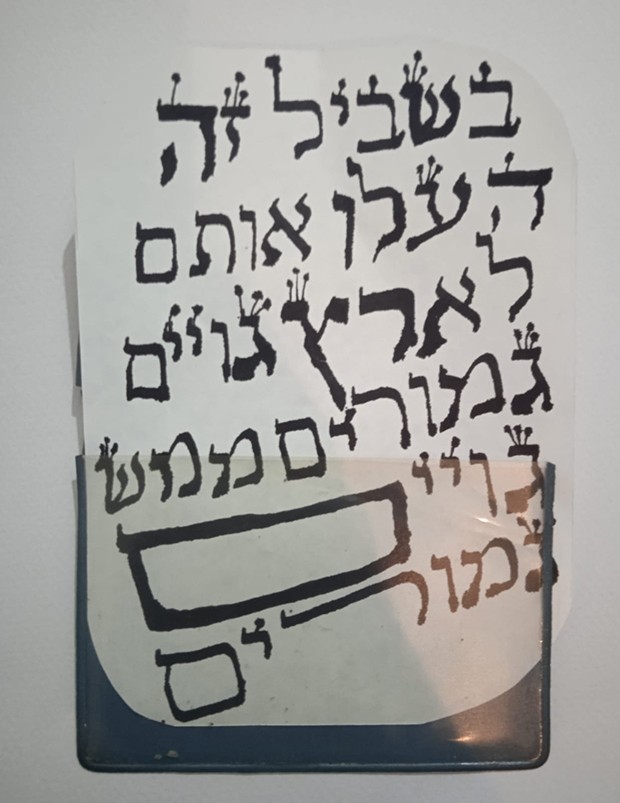 בשביל זה
העלו אותם
לארץ גויים
גמורים ממש
גויים
גמורים